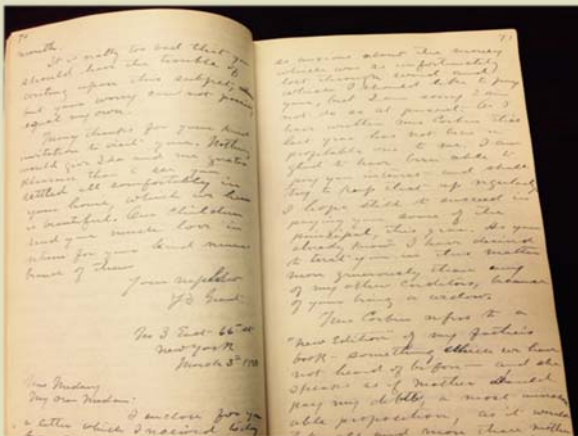 70
month.
It is really too bad that you
should have the trouble of
writing upon this subject,
but your worry can not possibly
equal my own.
Many thanks for your kind
invitation to visit you. Nothing
would give Ida and me greater
pleasure than to see you
settled all comfortably in
your home, which we hear
is beautiful. Our children
send you much love in
which for your kind
of them
Your nephew
Grant
No 3 East 66th st
New York
March 3d
My Dear Madam
I enclose for you
a letter which I received today
71
so anxious about the money
which was so unfortunately
lost through and
which I should like to pay
you, but I am sorry I am
not so at present. As I
have written Mrs Corbin this
last year has not been a
profitable one to me. I am
glad to have been able to
pay you interest and shall
try to keep that up regularly
I hope still to succeed in
paying you some of the
principal this year. As you
already know I have desired
to treat you in this matter
more generously than any
of my other creditors, because
of your being a widow.
Mrs Corbin refers to a
"New Edition of my father's
book - something which we have
not heard of before - and she
speaks as if Mother should
pay my debts, a most
able proposition, as it would
more than Mother